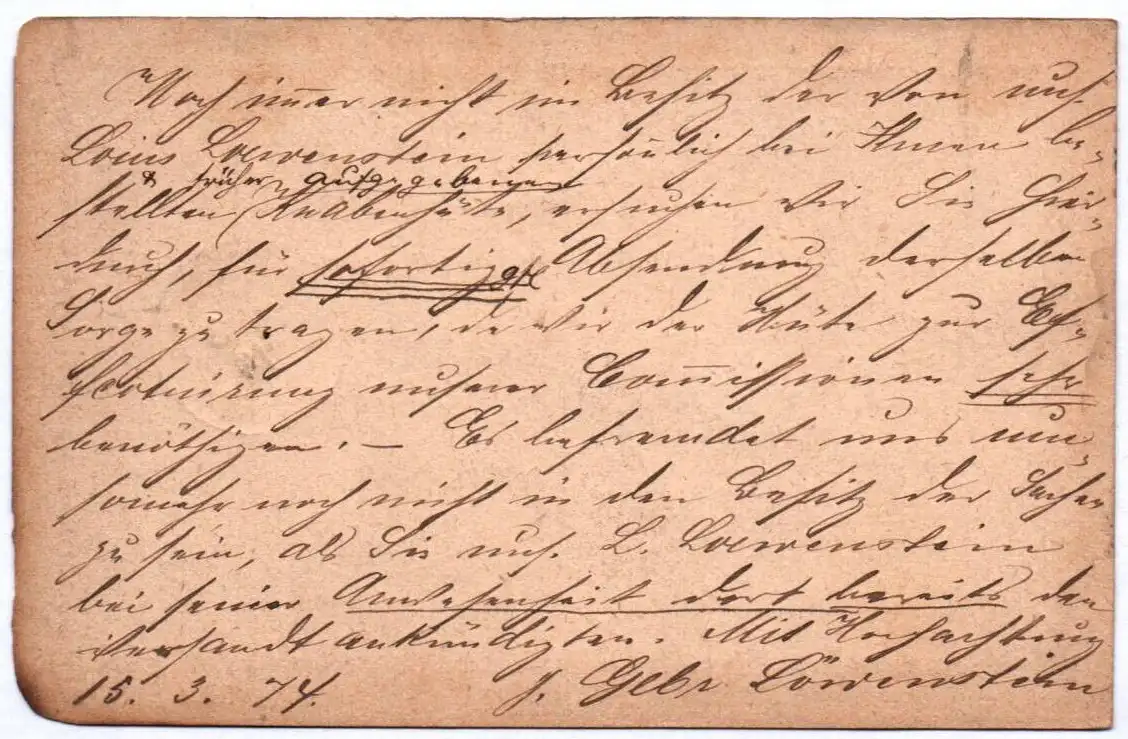 Noch immer nicht im Besitz der von uns.
Louis Loewenstein persönlich bei Ihnen be-
& früher aufgegebenen
stellten Knabenhüte, ersuchen wir Sie hier-
durch, für sofortigste Absendung derselben
Sorge zu tragen, da wir der Hüte zur Ef-
fectuirung unserer Commissionen sehr
benöthigen. — Es befremdet uns um-
somehr noch nicht in den Besitz der Sachen
zu sein, als Sie uns. L. Loewenstein
bei seiner Anwesenheit dort bereits den
Versandt ankündigten. Mit Hochachtung
15. 3. 74. Gebr Löwenstein